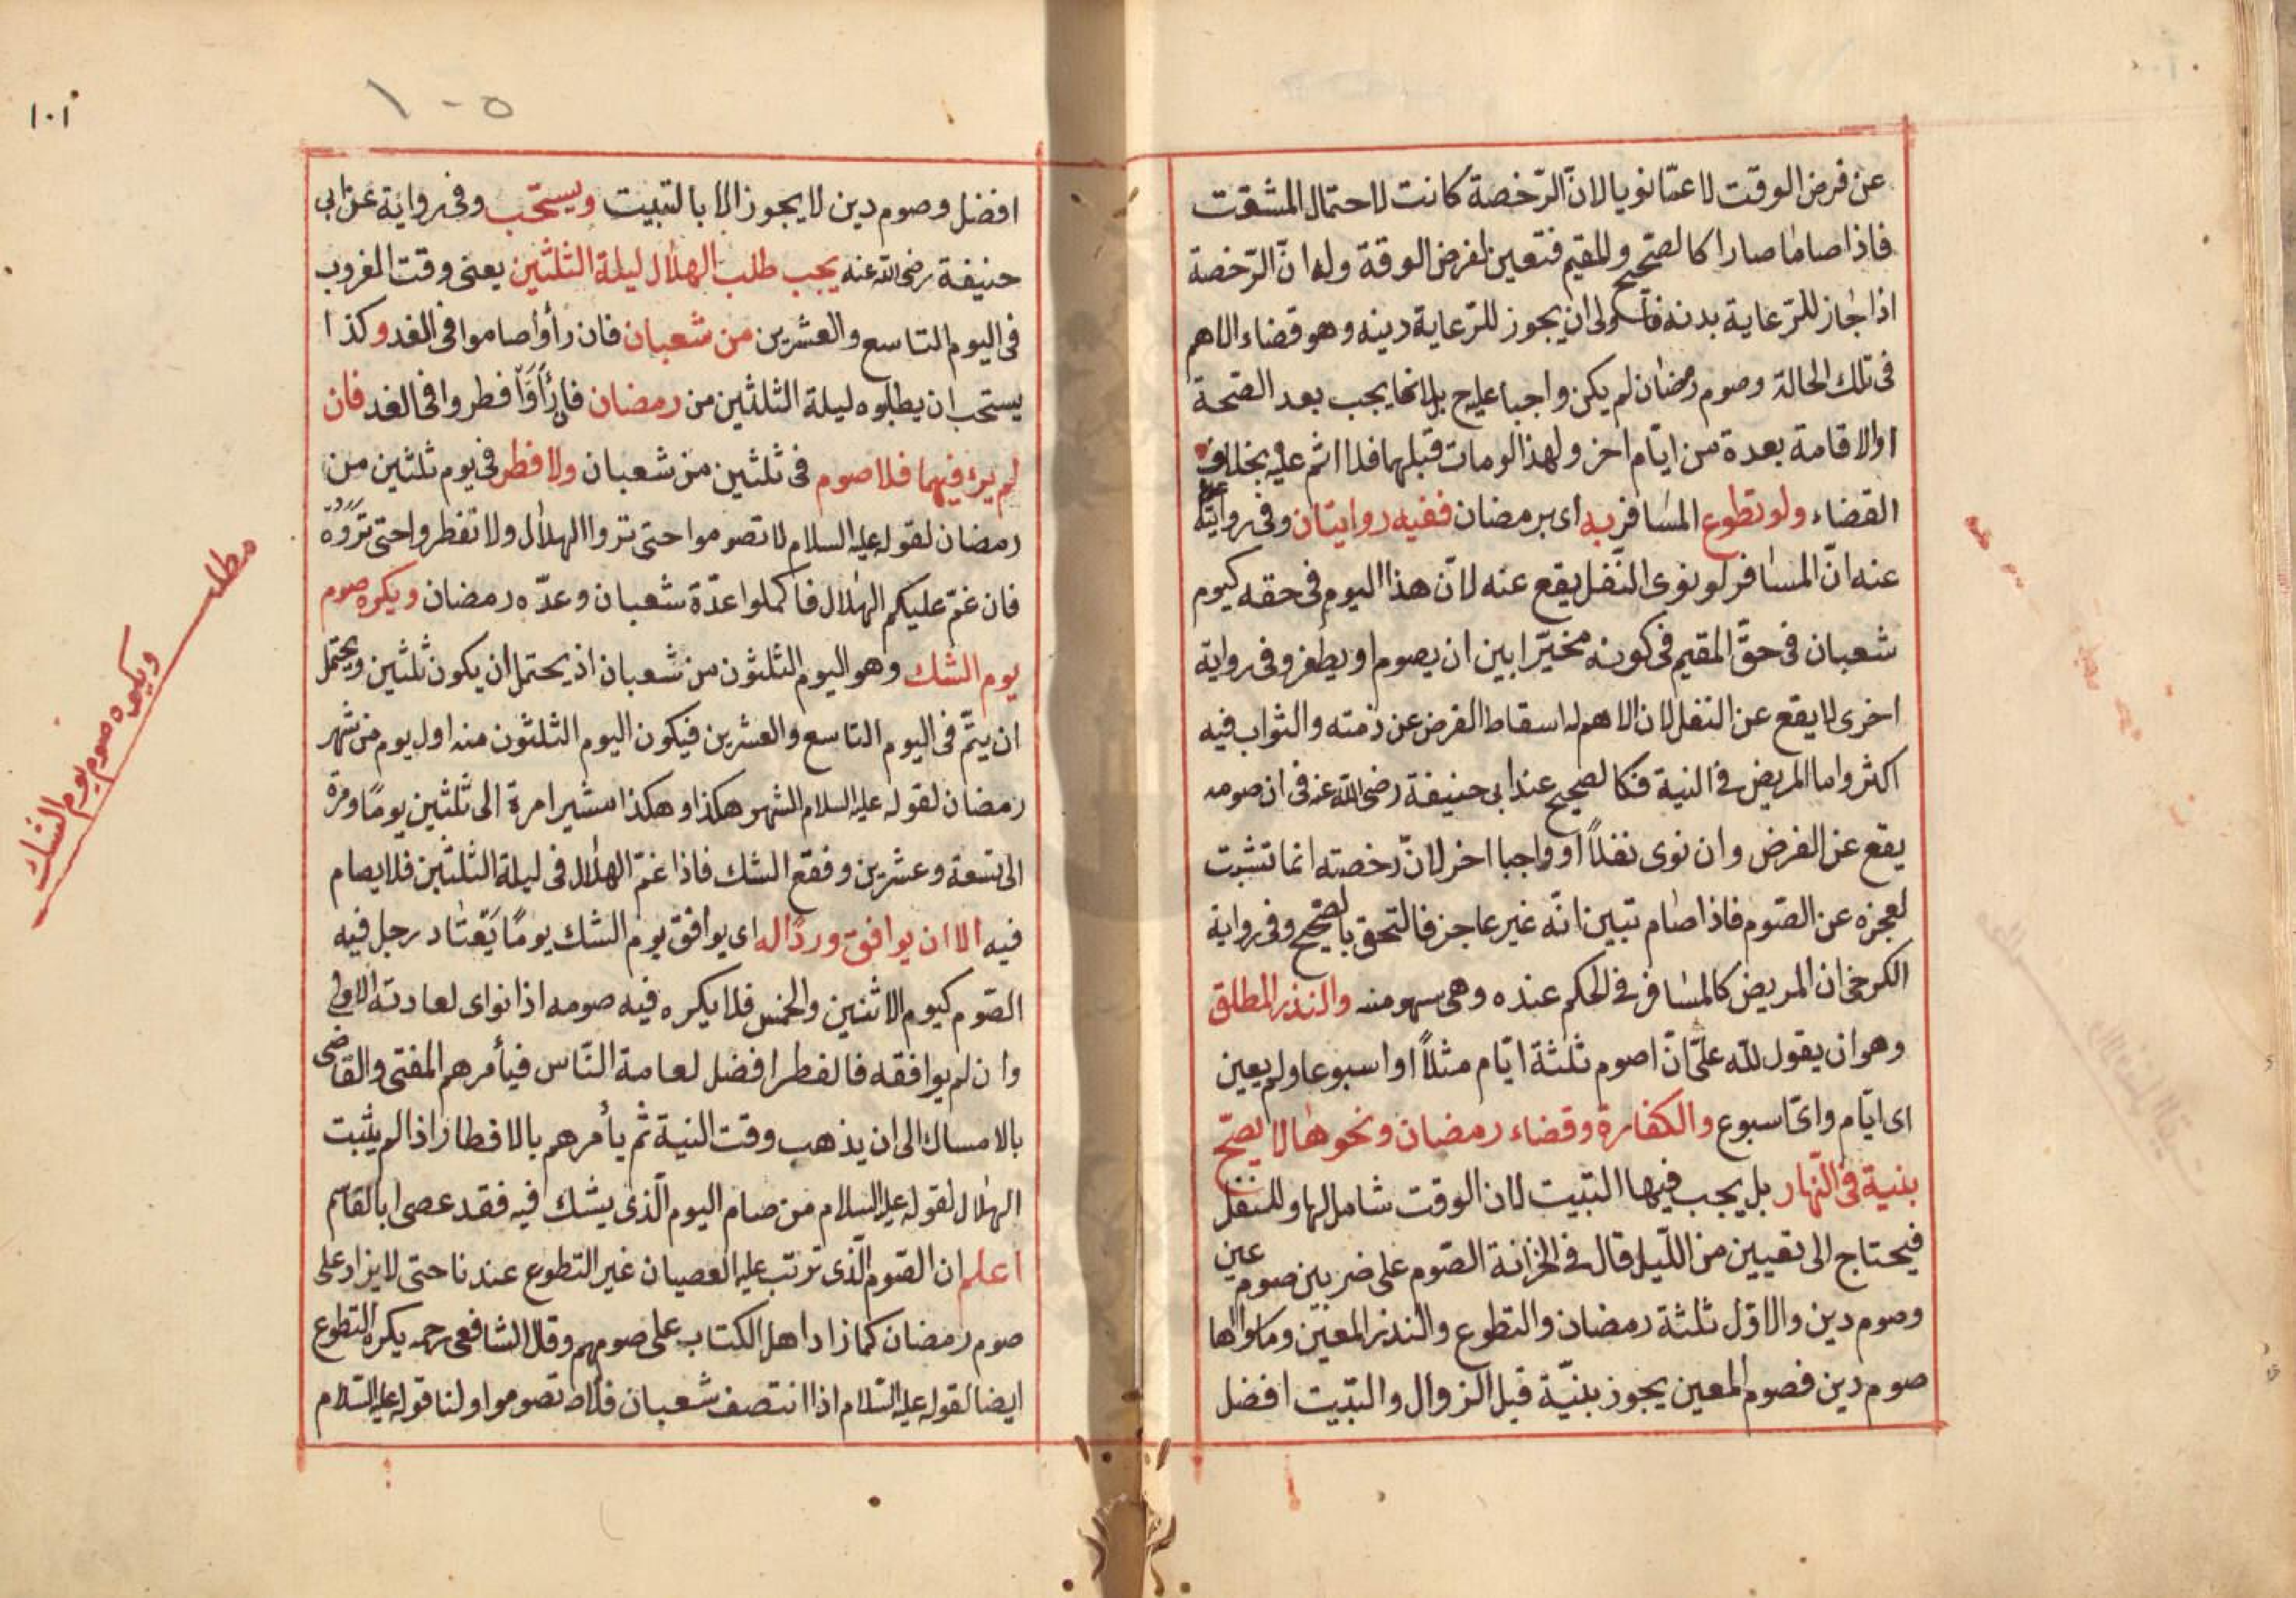 عن فرض الوقت لا عمّا نويا لانّ الرّخصة كانت لاحتمال المشقت
فاذا صاما صارا كالصّحيح والمقيم فتعين لفرض الوقة وله انّ الرّخصة
اذا جاز للرّعاية بدنه فاولى ان يجوز للرّعاية دينه وهو قضاء الاهم
فى تلك الحالة وصوم رمضان لم يكن واجبا عليه بل انما يجب بعد الصّحة
او الاقامة بعدة من ايّام اخر ولهذا لو مات قبلهما فلا اثم عليه بخلاف
القضاء ولو تطوع المسافر به اى برمضان ففيه روايتان وفى رواية
عنه انّ المسافر لو نوى النّفل يقع عنه لانّ هذا اليوم فى حقه كيوم
شعبان فى حقّ المقيم فى كونه مخيّرا بين ان يصوم او يطفر وفى رواية
اخرى لا يقع عن النفل لان الاهم له اسقاط الفرض عن ذمته والثواب فيه
اكثر واما المريض فى النية فكالصحيح عند ابى حنيفة رضى الله عنه فى ان صومه
يقع عن الفرض وان نوى نفلاً او واجبا اخر لانّ رخصته انما تثبت
لعجزه عن الصّوم فاذا صام تبين انّه غير عاجز فالتحق بالصّحيح وفى رواية
الكرخى ان المريض كالمسافر فى الحكم عنده وهى سهو منه والنذر المطلق
وهو ان يقول لله علىّ انّ اصوم ثلثة ايّام مثلاً او اسبوعا ولم يعين
اى ايّام واىّ اسبوع والكفارة وقضاء رمضان ونحوها لا يصحّ
بنية فى النّهار بل يجب فيها التبيت لان الوقت شامل لها وللنفل
فيحتاج الى تعيين من اللّيل قال فى الخزانة الصّوم على ضربين صوم عين
وصوم دين والاوّل ثلثة رمضان والتطوع والنذر المعين وما سواها
صوم دين فصوم المعين يجوز بنيّة قبل الزوال والتبّيت افضل
١٠١
١٠٥
افضل وصوم دين لا يجوز الا بالتبيت ويستحب وفى رواية عن ابى
حنيفة رضى الله عنه يجب طلب الهلال ليلة الثلثين يعنى وقت المغروب
فى اليوم التاسع والعشرين من شعبان فان رأوا صاموا فى الغد وكذا
يستحب ان يطلبوه ليلة الثلثين من رمضان فان رأوا افطروا فى الغد فان
لم ير فيهما فلا صوم فى ثلثين من شعبان ولا فطر فى يوم ثلثين من
رمضان لقوله عليه السلام لا تصوموا حتى تروا الهلال ولا تفطروا حتى تروه
فان غمّ عليكم الهلال فاكملوا عدّة شعبان وعدّه رمضان ويكره صوم
يوم الشك وهو اليوم الثلثون من شعبان اذ يحتمل ان يكون ثلثين ويحتمل
ان يتمّ فى اليوم التاسع والعشرين فيكون اليوم الثلثون منه اول يوم من شهر
رمضان لقوله عليه السلام الشهر هكذا وهكذا مشيرا مرة الى ثلثين يومًا ومرة
الى تسعة وعشرين وفقع الشك فاذا غمّ الهلال فى ليلة الثلثين فلا يصام
فيه الا ان يوافق وردًا له اى يوافق يوم الشك يومًا يَعْتاد رجل فيه
الصّوم كيوم الاثنين والخمس فلا يكره فيه صومه اذا نواى لعادته الاولى
وان لم يوافقه فالفطر افضل لعامة النّاس فيأمرهم المفتى والقاضى
بالامساك الى ان يذهب وقت النية ثم يأمرهم بالافطار اذا لم يثبت
الهلال لقوله عليه السلام من صام اليوم الّذى يشك فيه فقد عصى ابا لقاسم
اعلم ان الصّوم الّذى ترتب عليه العصيان غير التطوع عندنا حتى لا يزاد على
صوم رمضان كما زاد اهل الكتاب على صومهم وقال الشافعى رحمه يكره التطوع
ايضا لقوله عليه السّلام اذا انتصف شعبان فلا تصوموا ولنا قوله عليه السّلام
مطلب
ويكره صوم يوم الشك